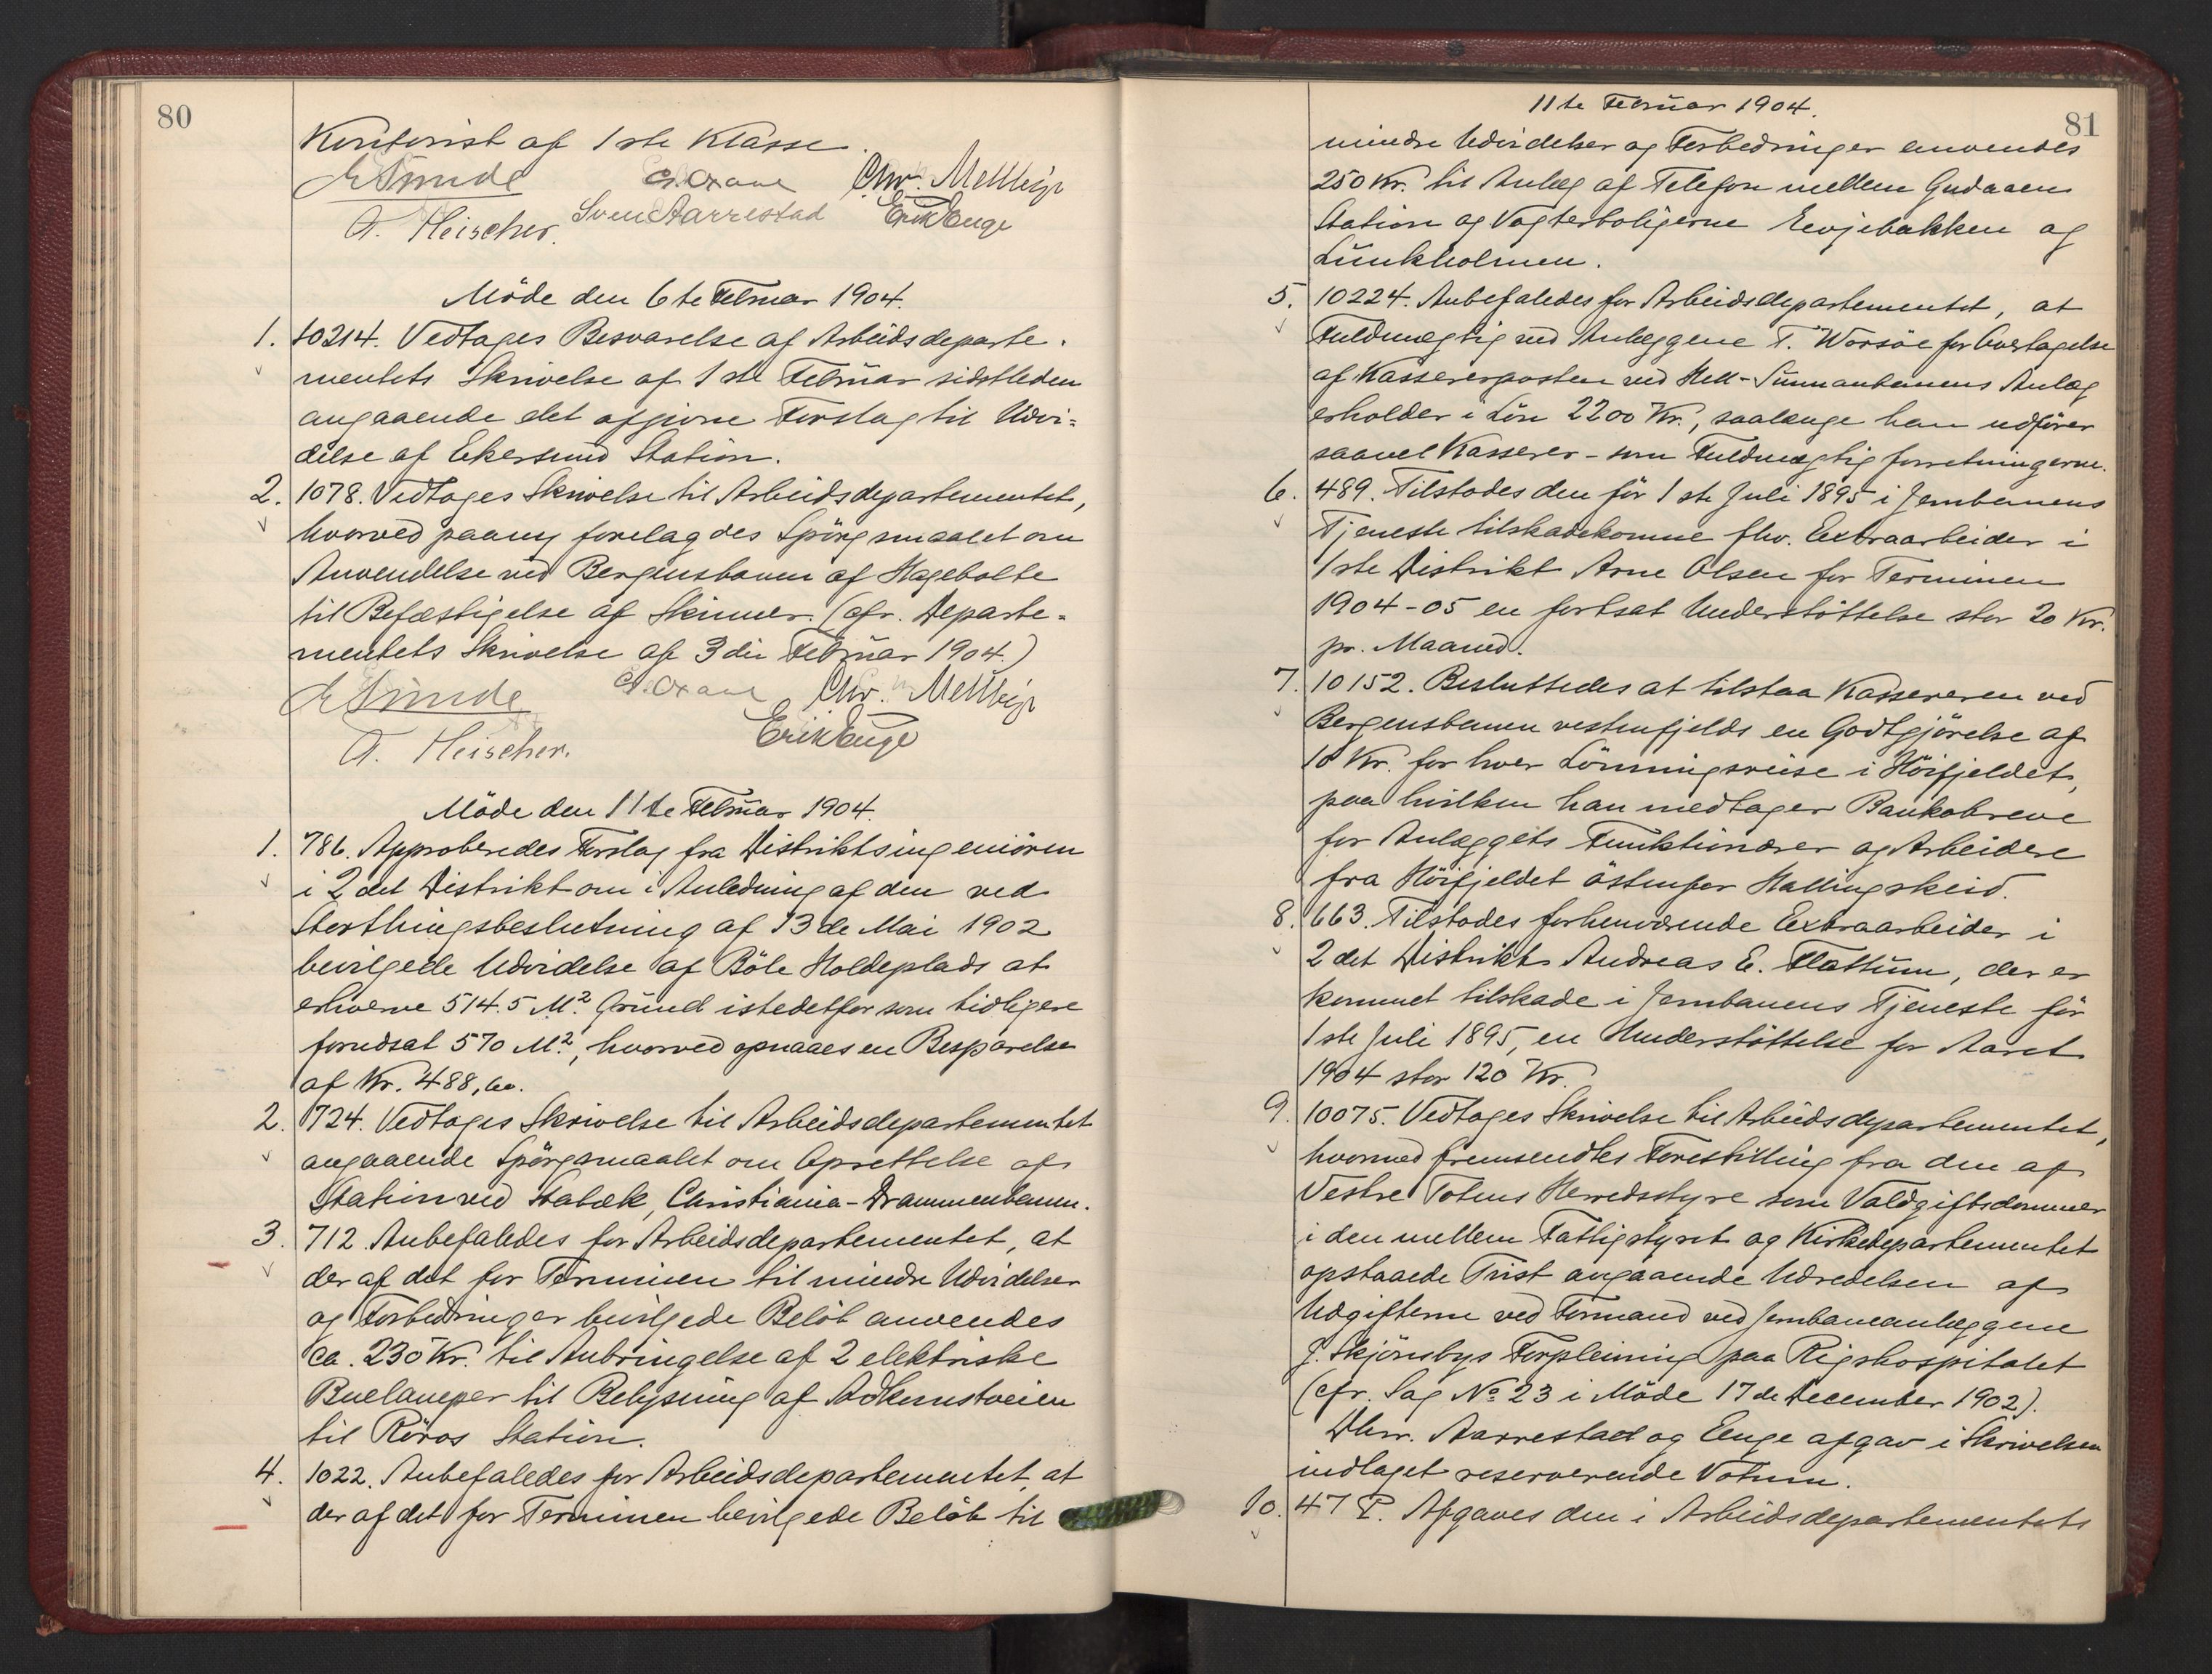 80
Kontorist af 1ste Klasse.
E Sunde G. Crawe Chr. Mellbye
A. Fleischer. Sven Aarrestad Erik Enge
Möde den 6te Februar 1904.
1. 10214. Vedtoges Besvarelse af Arbeidsdeparte-
mentets Skrivelse af 1ste Februar sidstleden
angaaende det afgivne Forslag til Udvi-
delse af Ekersund Station.
2. 1078. Vedtoges Skrivelse til Arbeidsdepartementet,
hvorved paany forelagdes Spörgsmaalet om
Anvendelse ved Bergensbanen af Hagebolte
til Befæstigelse af Skinner. (cfr. Departe-
mentets Skrivelse af 3die Februar 1904.)
E Sunde Chr. Mellbye
A. Fleischer. Erik Enge
Möde den 11te Februar 1904.
1. 786. Approberedes Forslag fra Distriktsingeniören
i 2det Distrikt om i Anledning af den ved
Storthingsbeslutning af 13de Mai 1902
bevilgede Udvidelse af Böle Holdeplads at
erhverve 514.5 M.² Grund istedetfor som tidligere
forudsat 570 M.², hvorved opnaaes en Besparelse
af Kr. 488,60.
2. 724. Vedtoges Skrivelse til Arbeidsdepartementet
angaaende Spörgsmaalet om Oprettelse af
Station ved Stabæk, Christiania-Drammenbanen.
3. 712. Anbefaledes for Arbeidsdepartementet, at
der af det for Terminen til mindre Udvidelser
og Forbedringer bevilgede Belöb anvendes
ca. 230 Kr. til Anbringelse af 2 elektriske
Buelamper til Belysning af Adkomstveien
til Röros Station.
4. 1022. Anbefaledes for Arbeidsdepartementet, at
der af det for Terminen bevilgede Belöb til
11te Februar 1904.
81
mindre Udvidelser og Forbedringer anvendes
250 Kr. til Anlæg af Telefon mellem Gudaaen
Station og Vogterboligerne Evjebakken og
Lunkholmen.
5. 10224. Anbefaledes for Arbeidsdepartementet, at
Fuldmægtig ved Anlæggene T. Worsöe for Overtagelse
af Kassererposten ved Hell-Sunnanbanens Anlæg
erholder i Lön 2200 Kr., saalænge han udförer
saavel Kasserer- som Fuldmægtigforretningerne.
6. 489. Tilstodes den för 1ste Juli 1895 i Jernbanens
Tjeneste tilskadekomne fhv. Extraarbeider i
1ste Distrikt Arne Olsen for Terminen
1904-05 en fortsat Understöttelse stor 20 Kr.
pr. Maaned.
7. 10152. Besluttedes at tilstaa Kassereren ved
Bergensbanen vestenfjelds en Godtgjörelse af
10 Kr. for hver Lönningsreise i Höifjeldet,
paa hvilken han medtager Bankobreve
for Anlæggets Funktionærer og Arbeidere
fra Höifjeldet östenfor Hallingskeid.
8. 663. Tilstodes forhenværende Extraarbeider i
2det Distrikt Andreas E. Flattum, der er
kommet tilskade i Jernbanens Tjeneste för
1ste Juli 1895, en Understöttelse for Aaret
1904 stor 120 Kr.
9. 10075. Vedtoges Skrivelse til Arbeidsdepartementet,
hvormed fremsendtes Forestilling fra den af
Vestre Totens Herredsstyre som Voldgiftsdommer
i den mellem Fattigstyret og Kirkedepartementet
opstaaede Tvist angaaende Udredelsen af
Udgifterne ved Formand ved Jernbaneanlæggene
J. Skjörnsbys Forpleining paa Rigshospitalet
(cfr. Sag No 23 i Möde 17de December 1902).
Dhrr. Aarrestad og Enge afgav i Skrivelsen
indtaget reserverende Votum.
10. 47 P. Afgaves den i Arbeidsdepartementets